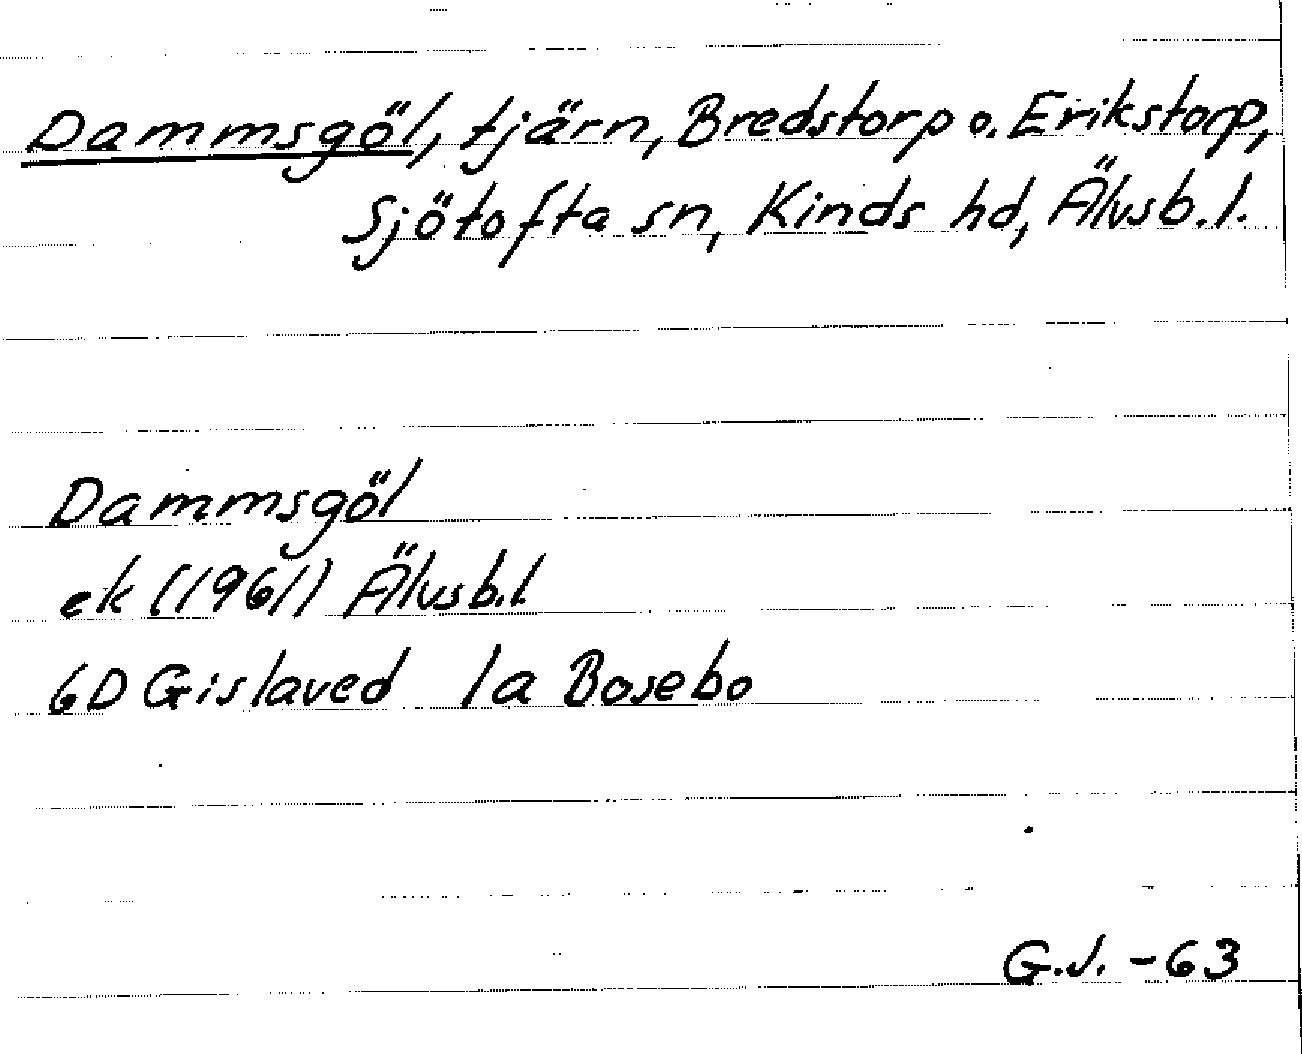 Dammsgöl, tjärn, Bredstorp o. Erikstorp,
Sjötofta sn, Kinds hd, Älvsb. l.
Dammsgöl
ek (1961) Älvsb.l.
6D Gislaved 1a Bosebo
G.J. -63